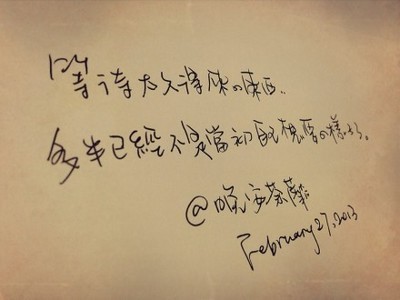 等待太久得來の東西..
多半已經不是當初自己想要の樣子了。
@晚安
February 27, 2013